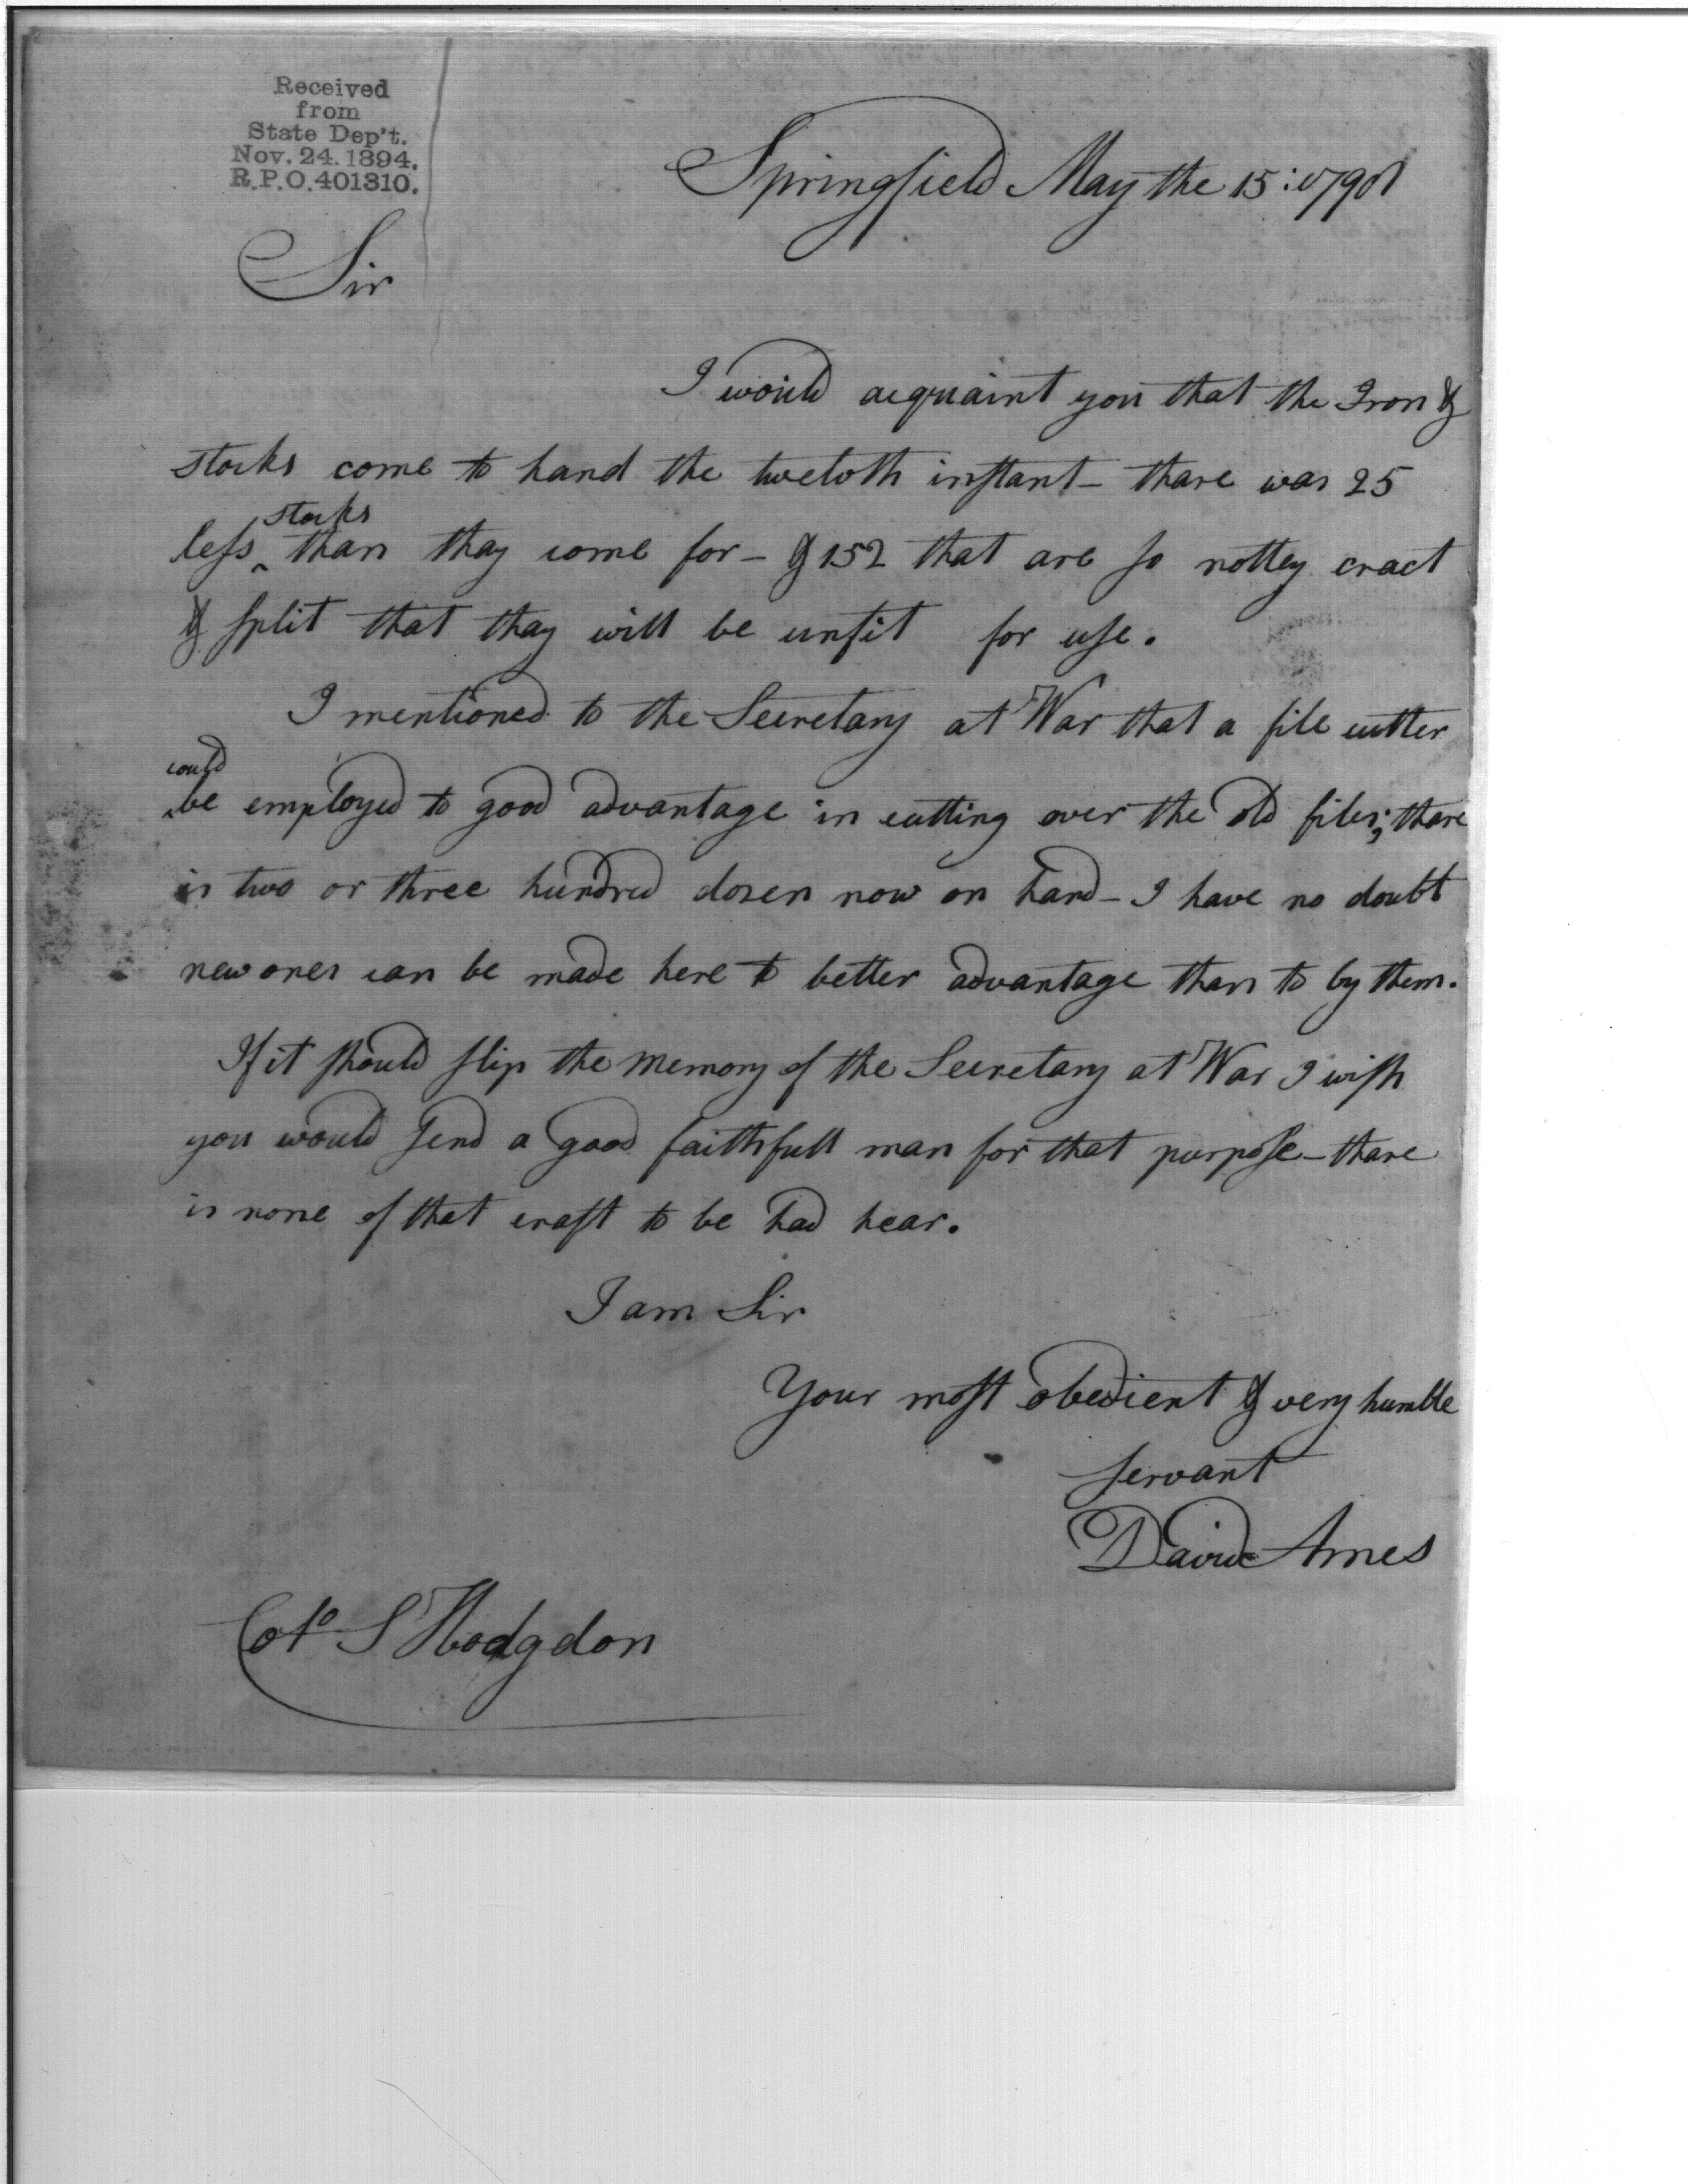 Received
from
State Dep't.
Nov. 24. 1894.
R.P.O. 401310.
Springfield May the 15:
Sir
I would acquaint you that the Iron &
stocks come to hand the twelvth instant – thare was 25
stocks
less ^ than thay come for – & 152 that are so nottey cract
& split that thay will be unfit for use.
I mentioned to the Secretary at War that a file cutter
could
^be employed to good advantage in cutting over the old files; thare
is two or three hundred dozen now on hand – I have no doubt
new ones can be made here to better advantage than to by them.
If it should slip the memory of the Secretary at War I wish
you would send a good faithfull man for that purpose – thare
is none of that craft to be had hear.
I am Sir
Your most obedient & very humble
servant
David Ames
Colo S Hodgdon